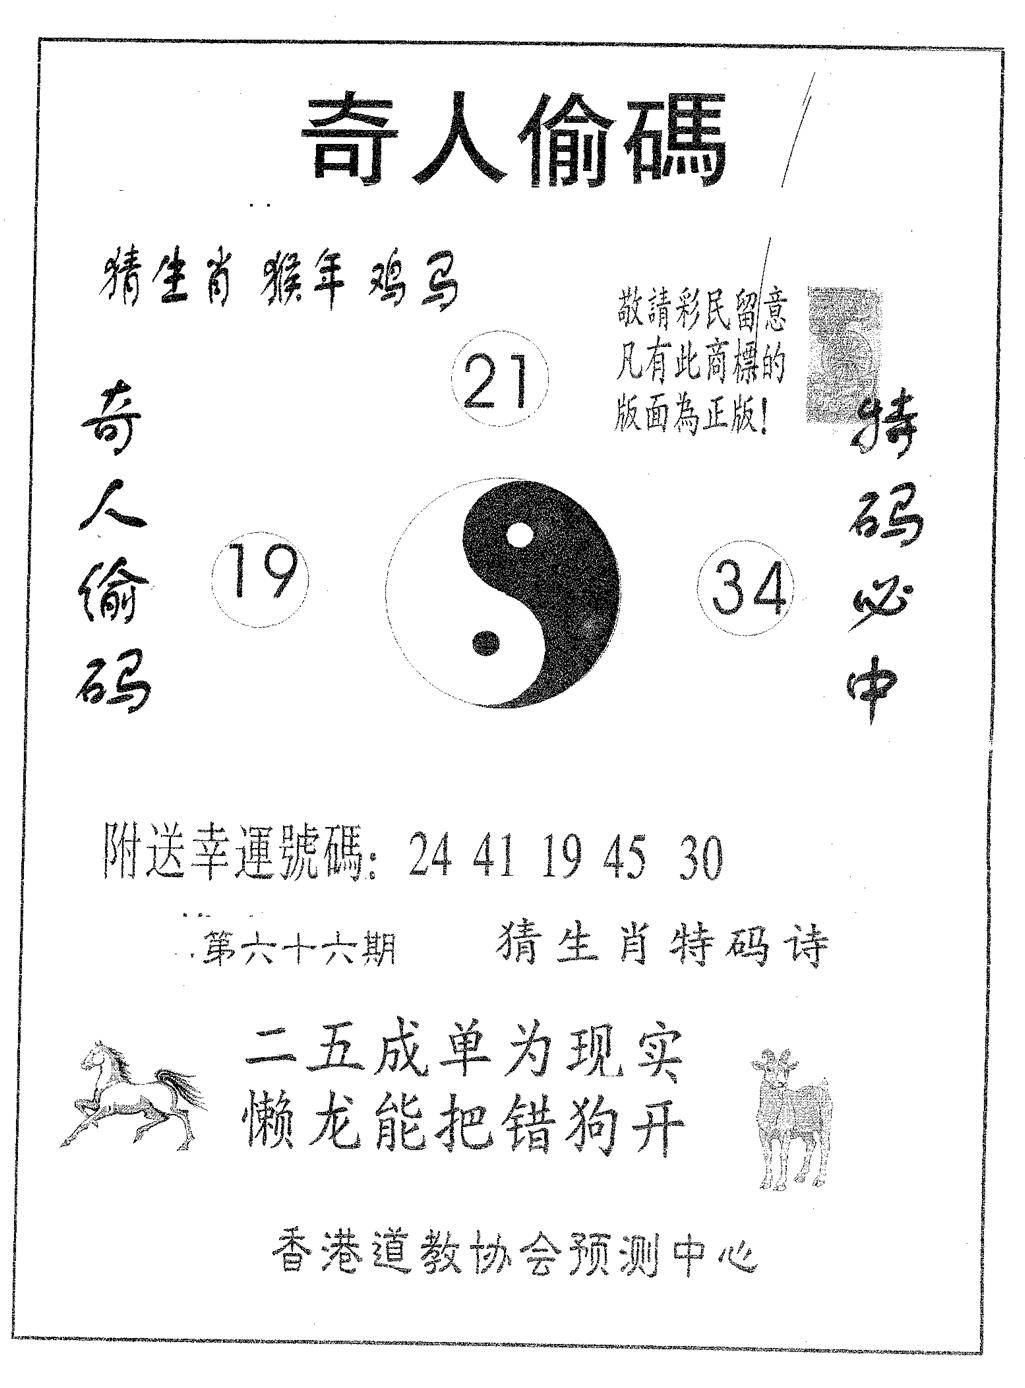 奇人偷碼
猜生肖 猴年鸡马
敬請彩民留意
凡有此商標的
版面為正版!
21
奇人偷码
19
34
特码必中
附送幸運號碼: 24 41 19 45 30
第六十六期
猜生肖特码诗
二五成单为现实
懒龙能把错狗开
香港道教协会预测中心